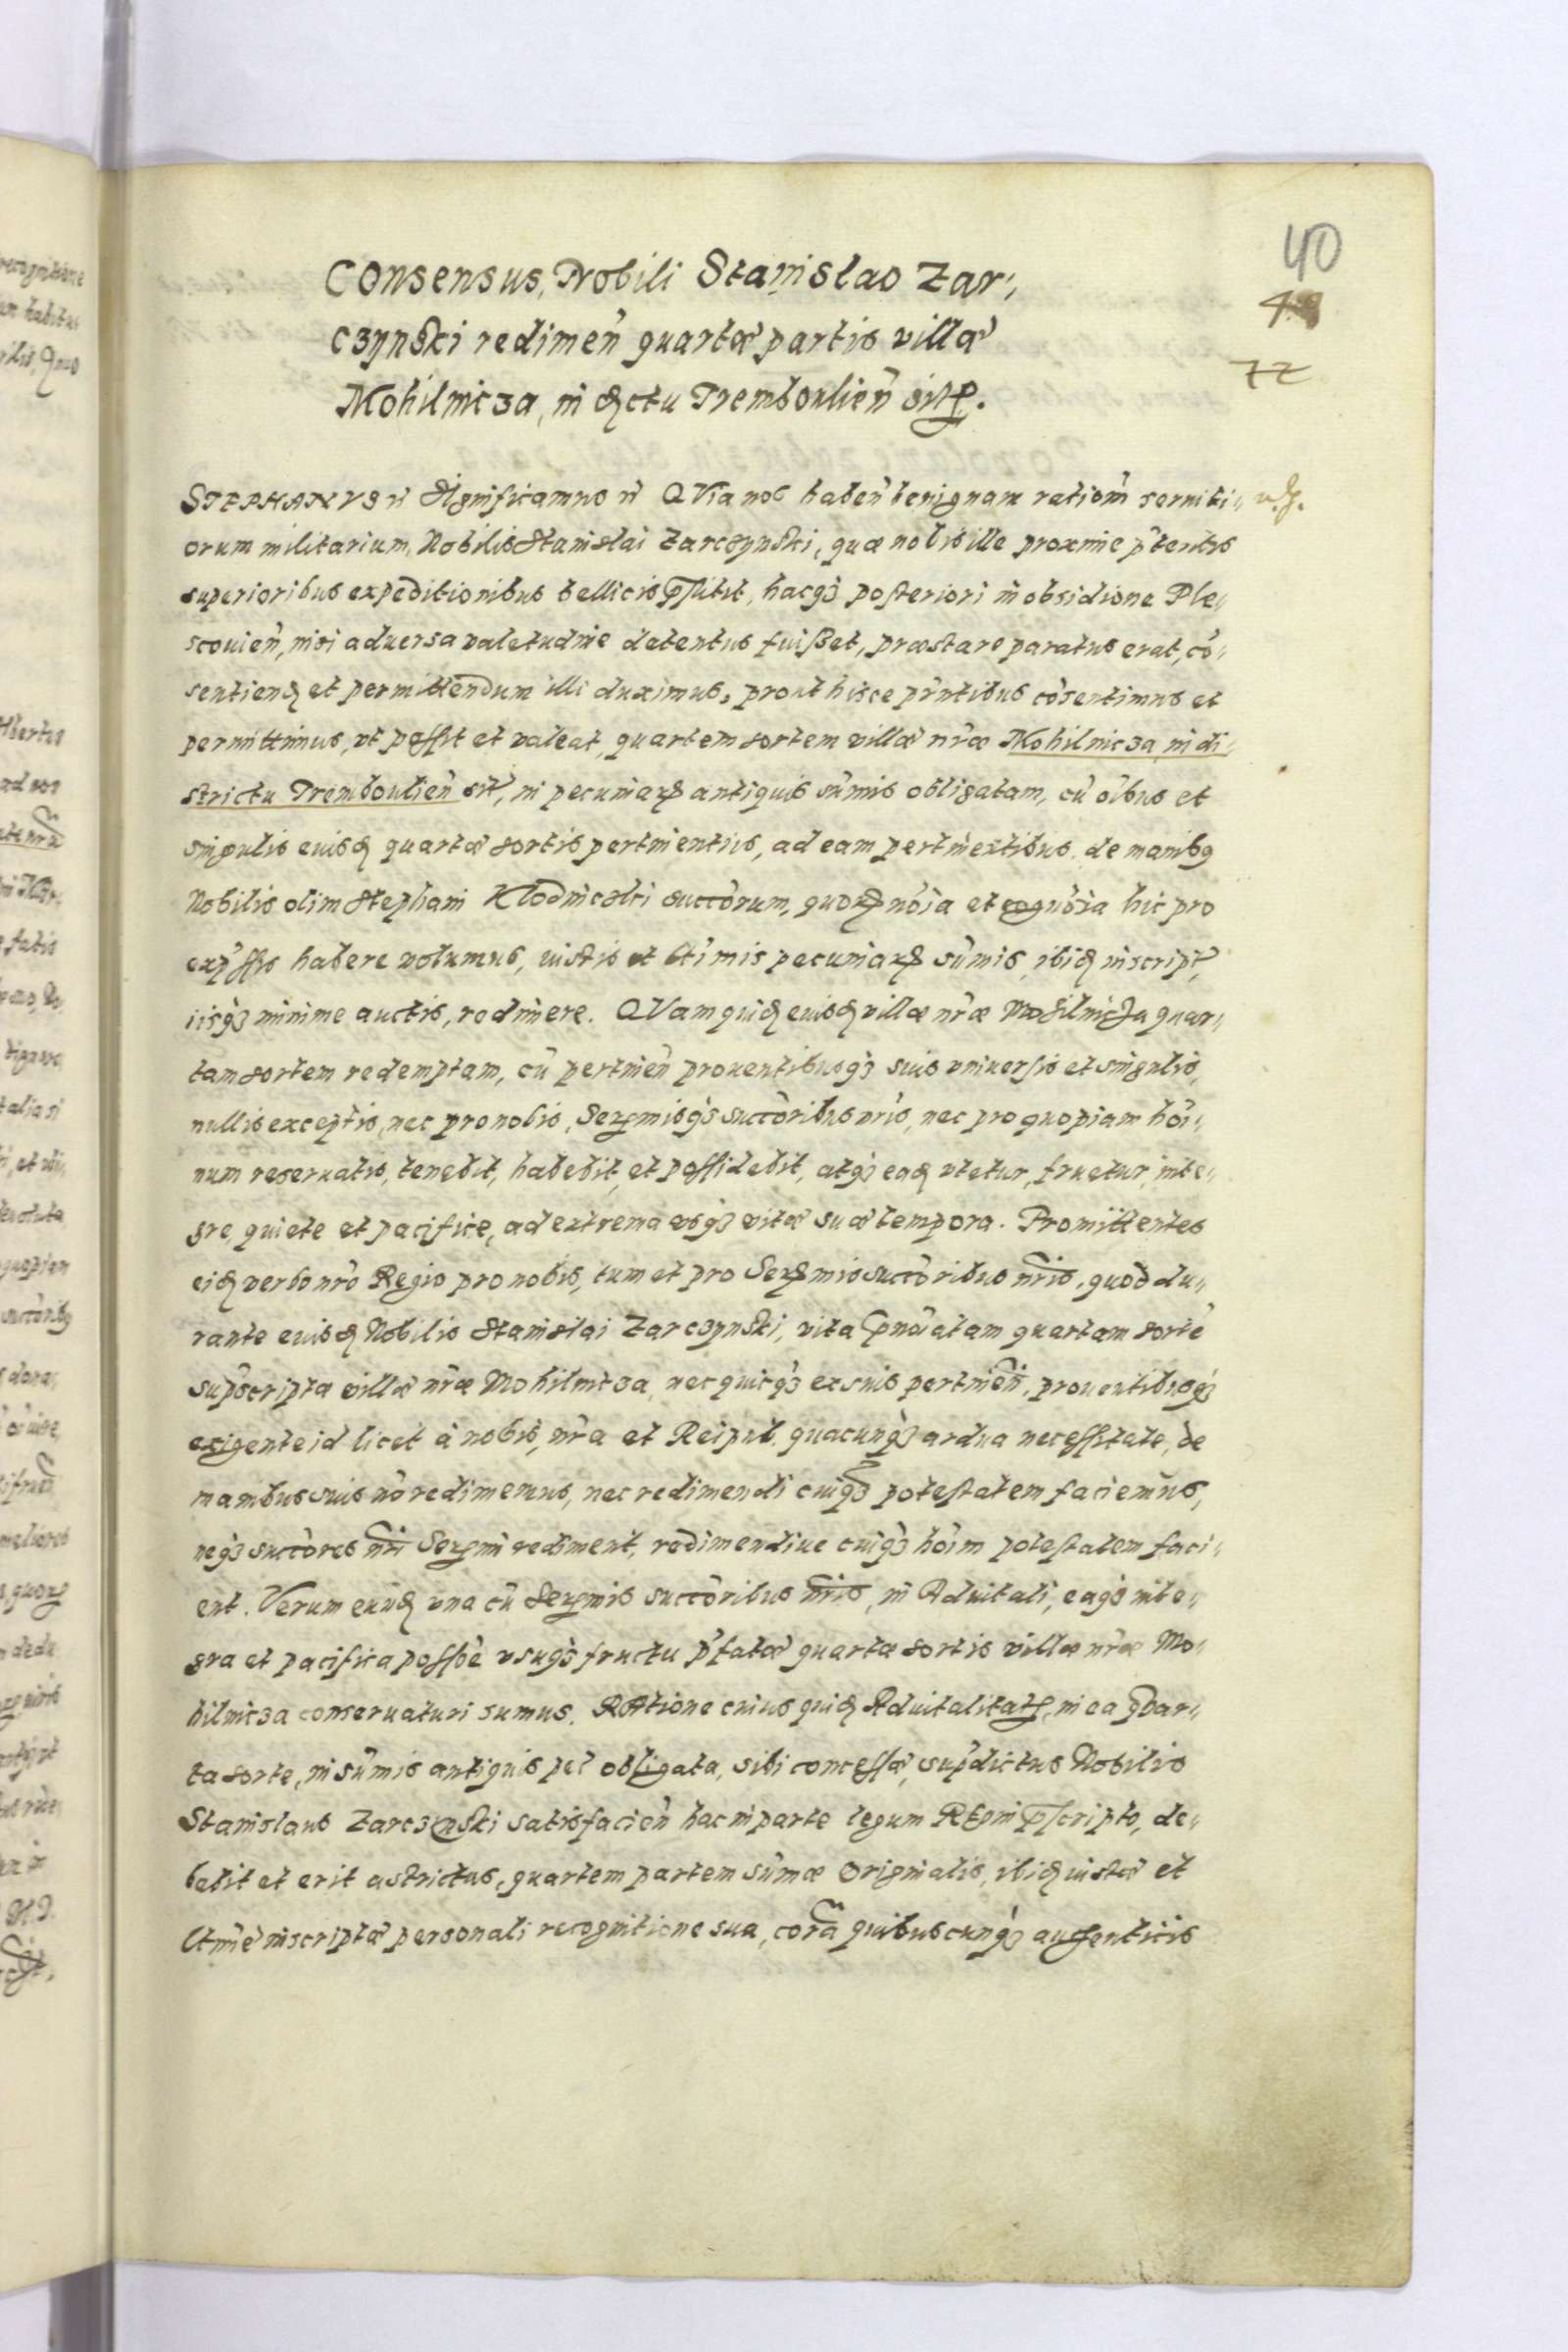 40
48
72
Consensus, Nobili Stanislao Zar,,
czynski redimen̄ quartæ partis villæ
Mohilnicza, in dctu Tremboulien̄ sitꝝ.
STEPHANVS ec Significamus ec QVia nos haben̄ benignam rationē seruiti,,
orum militarium, Nobilis Stanislai Zarczynski, quæ nobis ille proxime p̃teritis
superioribus expeditionibus bellicis p̄stitit, hacq̃ꝫ posteriori in obsidione Ple,,
scouien̄, nisi aduersa valetudine detentus fuisset, præstare paratus erat, cō,,
sentiend et permittendum illi duximus, prout hisce pñtibus cõsentimus et
permittimus, vt possit et valeat, quartem sortem villæ nr̃æ Mohilnicza, in di,,
strictu Tremboulien̄ sit̃, in pecuniarꝝ antiquis sũmis obligatam, cũ oĩbus et
singulis eiusd quartæ sortis pertinentiis, ad eam pertinentibus, de manibꝰ
Nobilis olim Stephani Klodniczki succõrum, quorꝝ nõia et cognõia hic pro
exp̃ssis habere volumus, iustis et ltĩmis pecuniarꝝ sũmis, ibid inscript̃,
iisq̃ꝫ minime auctis, redimere. QVam quid eiusd villæ nr̃æ Mohilnicza quar,,
tam sortem redemptam, cũ pertinen̄ prouentibusq̃ꝫ suis vniuersis et singulis,
nullis exceptis, nec pro nobis, Serꝝmisq̃ꝫ succõribus nr̃is, nec pro quopiam hõi,,
num reseruatis, tenebit, habebit, et possidebit, atq̃ꝫ ead vtetur, fruetur, inte,,
gre, quiete et pacifice, ad extrema vsq̃ꝫ vitæ suæ tempora. Promittentes
eid verbo nr̃o Regio pro nobis, tum et pro Serꝝmis succõribus nr̃is, quod du,,
rante eiusd Nobilis Stanislai Zarczynski, vita p̄nõiatam quartam sortẽ
sup̃scriptæ villæ nr̃æ Mohilnicza, nec quicq̃ꝫ ex suis pertinen̄, prouentibusq̃ꝫ
exigente id licet à nobis, nr̃a et Reipub. quacunq̃ꝫ ardua necessitate, de
manibus suis nõ redimemus, nec redimendi cuiq̃ꝫ potestatem faciemus,
neq̃ꝫ succõres nr̃i Serꝝmi rediment, redimendiue cuiq̃ꝫ hõim potestatem faci,,
ent. Verum eund vna cũ Serꝝmis succõribus nr̃is, in Aduitali, eaq̃ꝫ inte,,
gra et pacifica possõe vsuq̃ꝫ fructu p̃fatæ quartæ sortis villæ nr̃æ Mo,,
hilnicza conseruaturi sumus. Ratione cuius quid Aduitalitatꝝ, in ea quar,,
ta sorte, in sũmis antiquis pec̃ obligata, sibi concessæ, sup̃dictus Nobilis
Stanislaus Zarczynski satisfacien̄ hac in parte legum Regni p̄scripto, de,,
bebit et erit astrictus, quartem partem sũmæ originalis, ibid iustæ et
ltimẽ inscriptæ personali recognitione sua, corã quibuscunq̃ꝫ authenticis